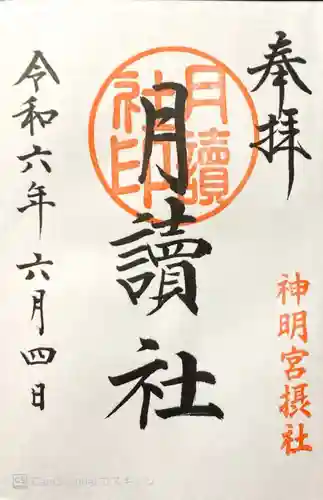 奉拝
神明宮摂社
月讀神印
月讀社
令和六年六月四日